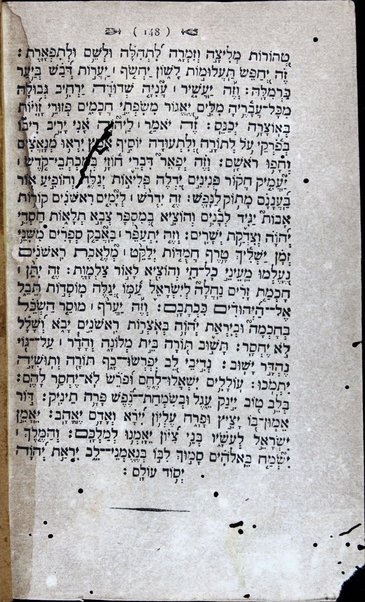 ( 148 )
טהורות מליצה וזמרה לתהלה ולשם ולתפארת:
זה יחפש תעלומות לשון יחשף יערות דבש ביער
כרמלה: וזה יעשיר עניה שדודה ירחיב גבולה
מכל עבריה מלים יאגור משפתי חכמים פזורי זויות
באוצרה יכנס: זה יאמר ליהוה אני יריב ריבו
בפרקי על לתורה ולתעודה יוסיף אמץ יראו מנאצים
וחפו ראשם: וזה יפאר דברי חוזי מכתבי קדש
יעמיק חקור פנינים ידלה פליאות יגלה והופיע אור
בעננם מתוק לנפש: זה ידרש לימים ראשנים קורות
אבות יגיד לבנים והוציא במספר צבא תלאות חסדי
יהוה וצדקת ישרים: וזה יתעפר באבק ספרים משני
זמן ישליך טרף חמדות ילקט מלאכת ראשנים
נעלמו מעיני כל חי והוציא לאור צלמות: זה יתן
חכמת זרים נחלה לישראל עמו יגלה מוסדות תבל
אל היהודים ככתבם: וזה יערף מוסר השכל
בחכמה וביראת יהוה באצרות ראשנים יבא ושלל
לא יחסר: תשוב תורה בית מלונה והדר על גוי
נהדר ישוב: נדיבי לב יפרשו כף תורה ותושיה
יתמכו: עוללים ישאלו להם ופרש לא יחסר להם:
בלב טוב יינק עגל ובשמחת נפש פרה תיניק: דור
אמון בו יציץ ופרח עליון יירא ואדם יאהב: יאמן
ישראל לעשיו בני ציון יאמנו למלכם: והמלך
ישמח באלהים סמוך לבו בנאמני לב יראת יהוה
יסוד עולם: